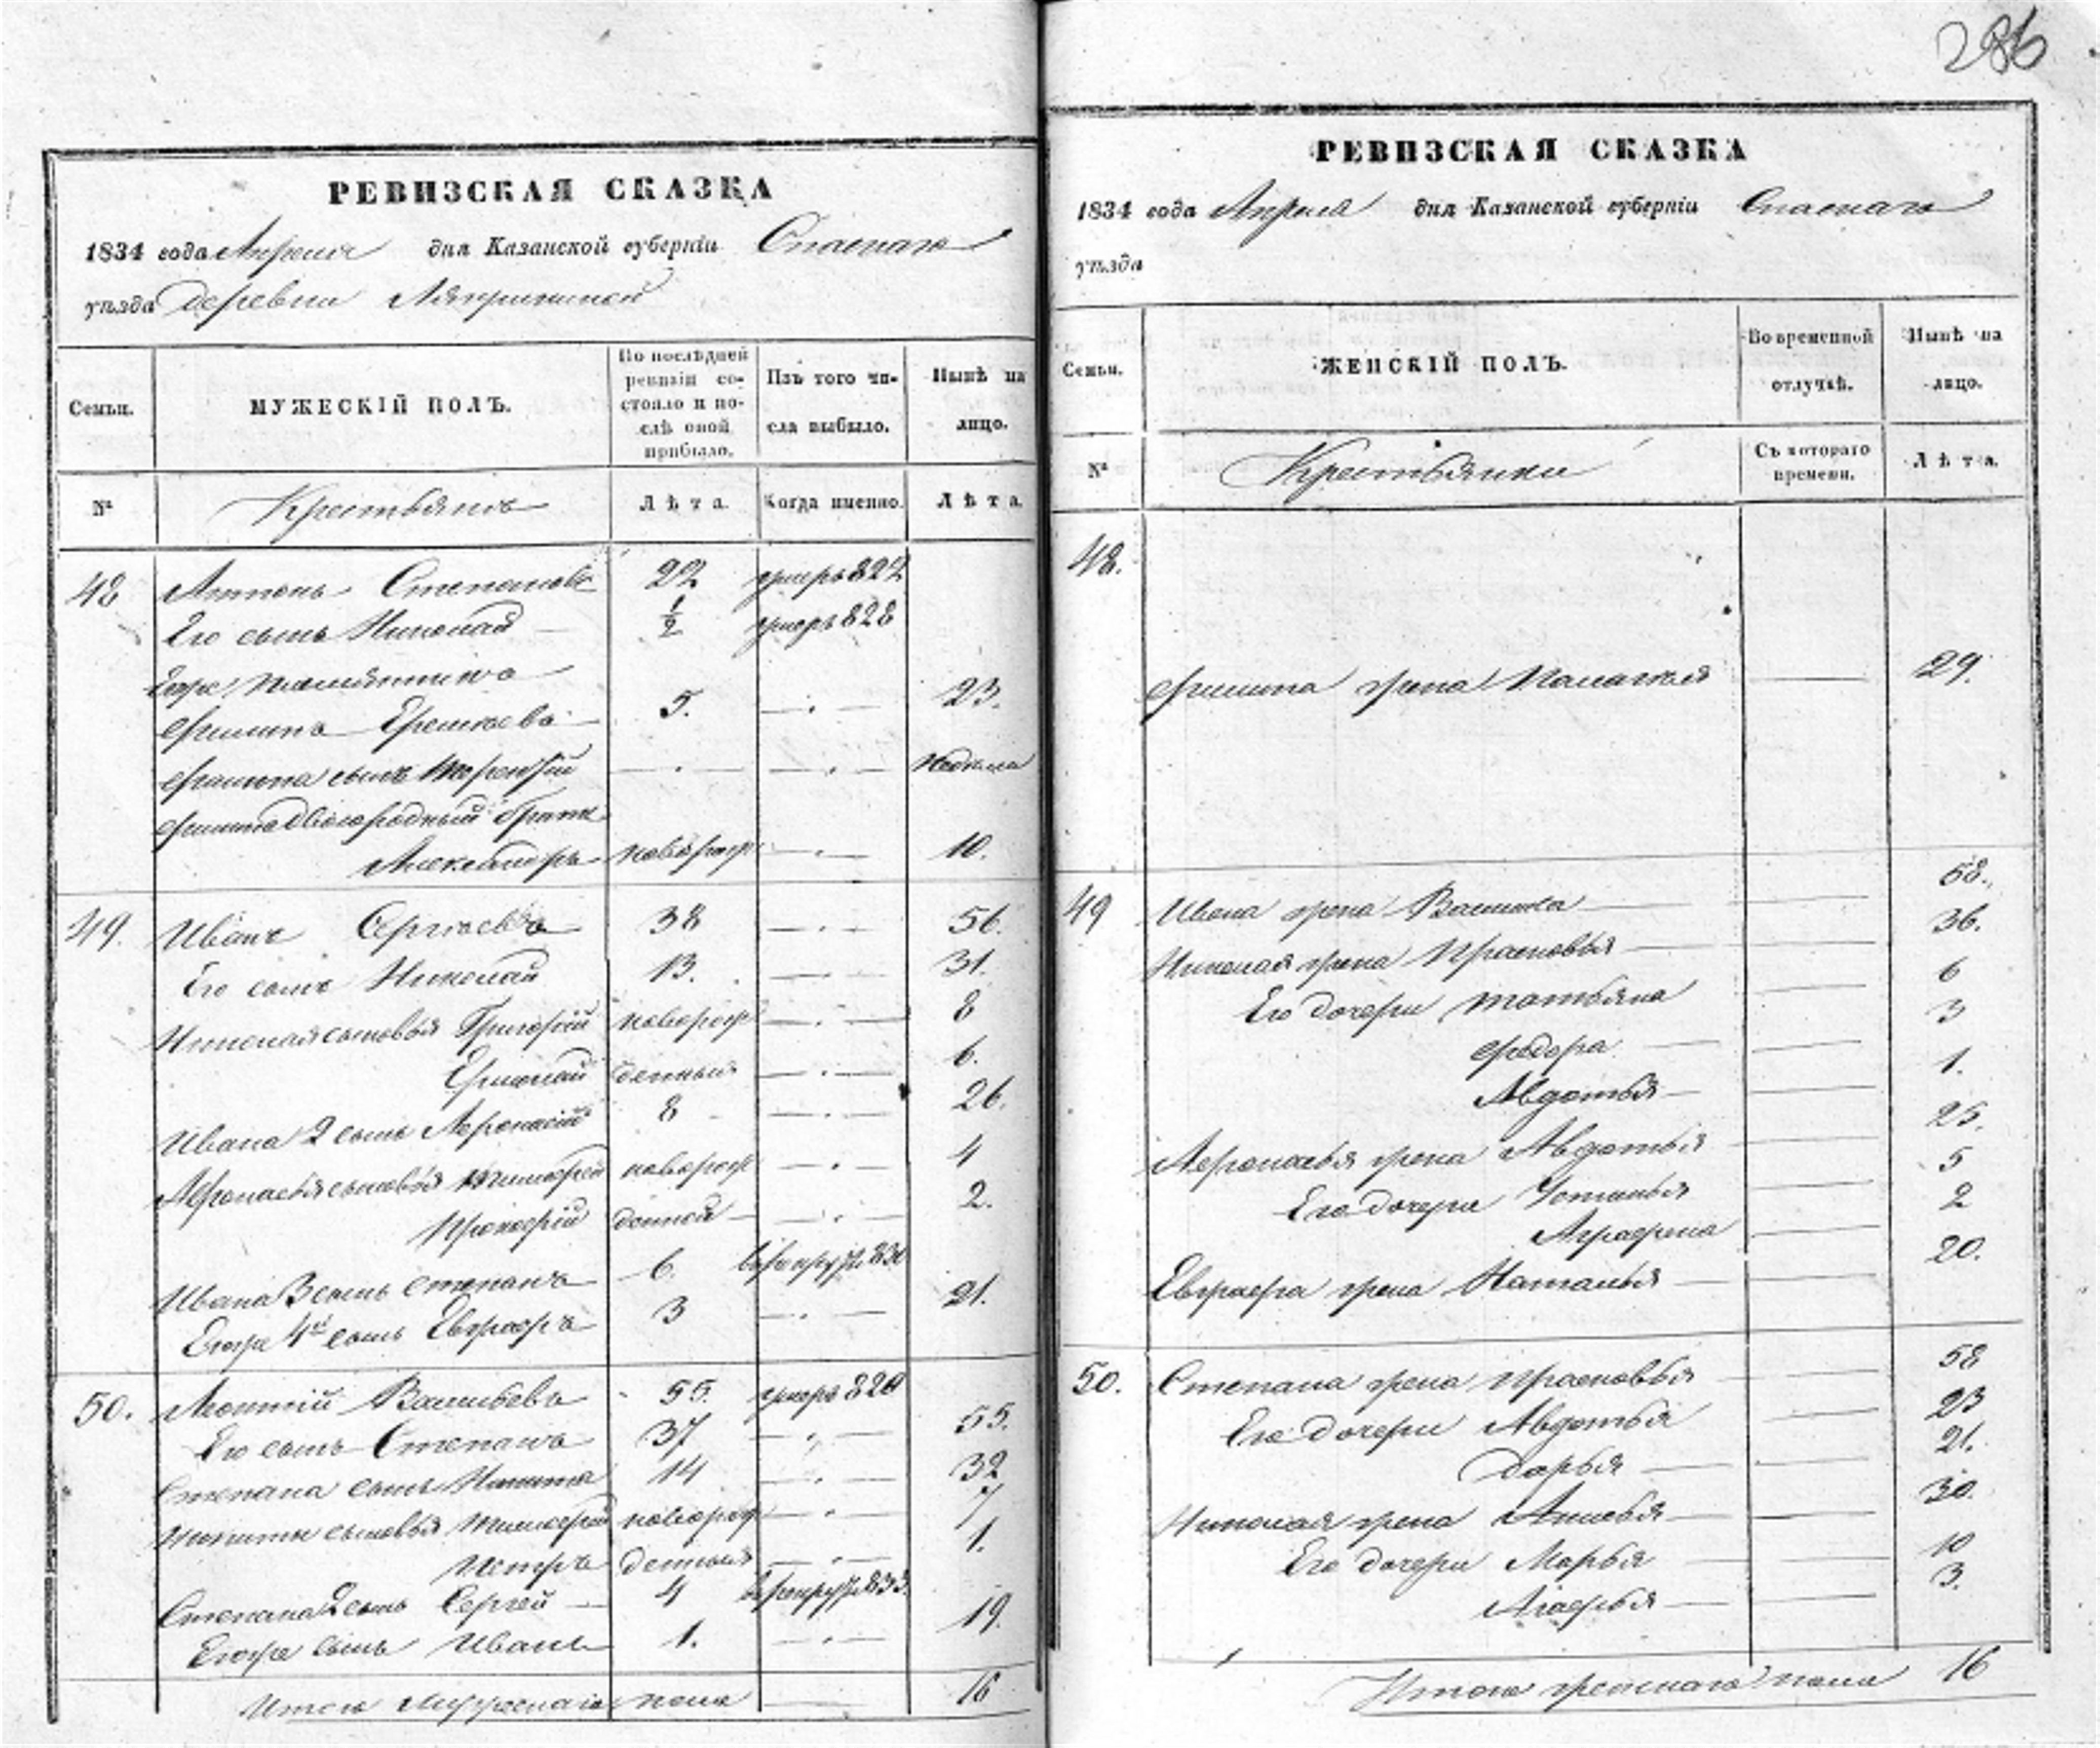 286
РЕВИЗСКАЯ СКАЗКА
1834 года Апреля дня Казанской губерніи Спаскаго
уѣзда деревни
Семьи.
МУЖЕСКІЙ ПОЛЪ.
По послѣдней ревизіи состояло и послѣ оной прибыло.
Изъ того числа выбыло.
Нынѣ на лицо.
№
Крестьянъ
Лѣта.
Когда именно.
Лѣта.
48 Антонъ Степановъ 22 умеръ 822
Его сынъ Николай 1/2 умеръ 828
Егоже
Филипъ 5. 23.
Филипа сынъ неделя
Филипа двоюродный братъ
Александръ новорож 10.
49. Иванъ Сергѣевъ 38 56.
Его сынъ Николай 13. 31.
Николая сыновья Григорій новорож 8
Ермолай денныя 6.
Ивана 2 сынъ Афонасій 8 26.
Афонасья сыновья Тимофей новорож 4
Прокофій денной 2.
Ивана 3 сынъ Степанъ 6. в рекруты 830
Егоже 4й сынъ Евграфъ 3 21.
50. Леонтій Васильевъ 55. умеръ 820
Его сынъ Степанъ 37 55.
Степана сынъ Никита 14 32
Никиты сыновья Тимофей новорож 7
Петръ денныя 1.
Степана 2 сынъ Сергей 4 в рекруты 833
Егоже сынъ Иванъ 1. 19.
Итого Мужескаго пола 16
РЕВИЗСКАЯ СКАЗКА
1834 года Апреля дня Казанской губерніи Спаскаго
уѣзда
Семьи.
ЖЕНСКІЙ ПОЛЪ.
Во временной отлучкѣ.
Нынѣ на лицо.
№
Крестьянки
Съ котораго времени.
Лѣта.
48.
Филипа жена Палагея 29.
49 Ивана жена Василиса 58.
Николая жена Прасковья 36.
Его дочери Татьяна 6
Федора 3
Авдотья 1.
Афонасья жена Авдотья 25.
Его дочери 5
Аграфена 2
Евграфа жена Наталья 20.
50. Степана жена Прасковья 58
Его дочери Авдотья 23
Дарья 21.
Николая жена 30.
Его дочери Марья 10
3.
Итого женскаго пола 16